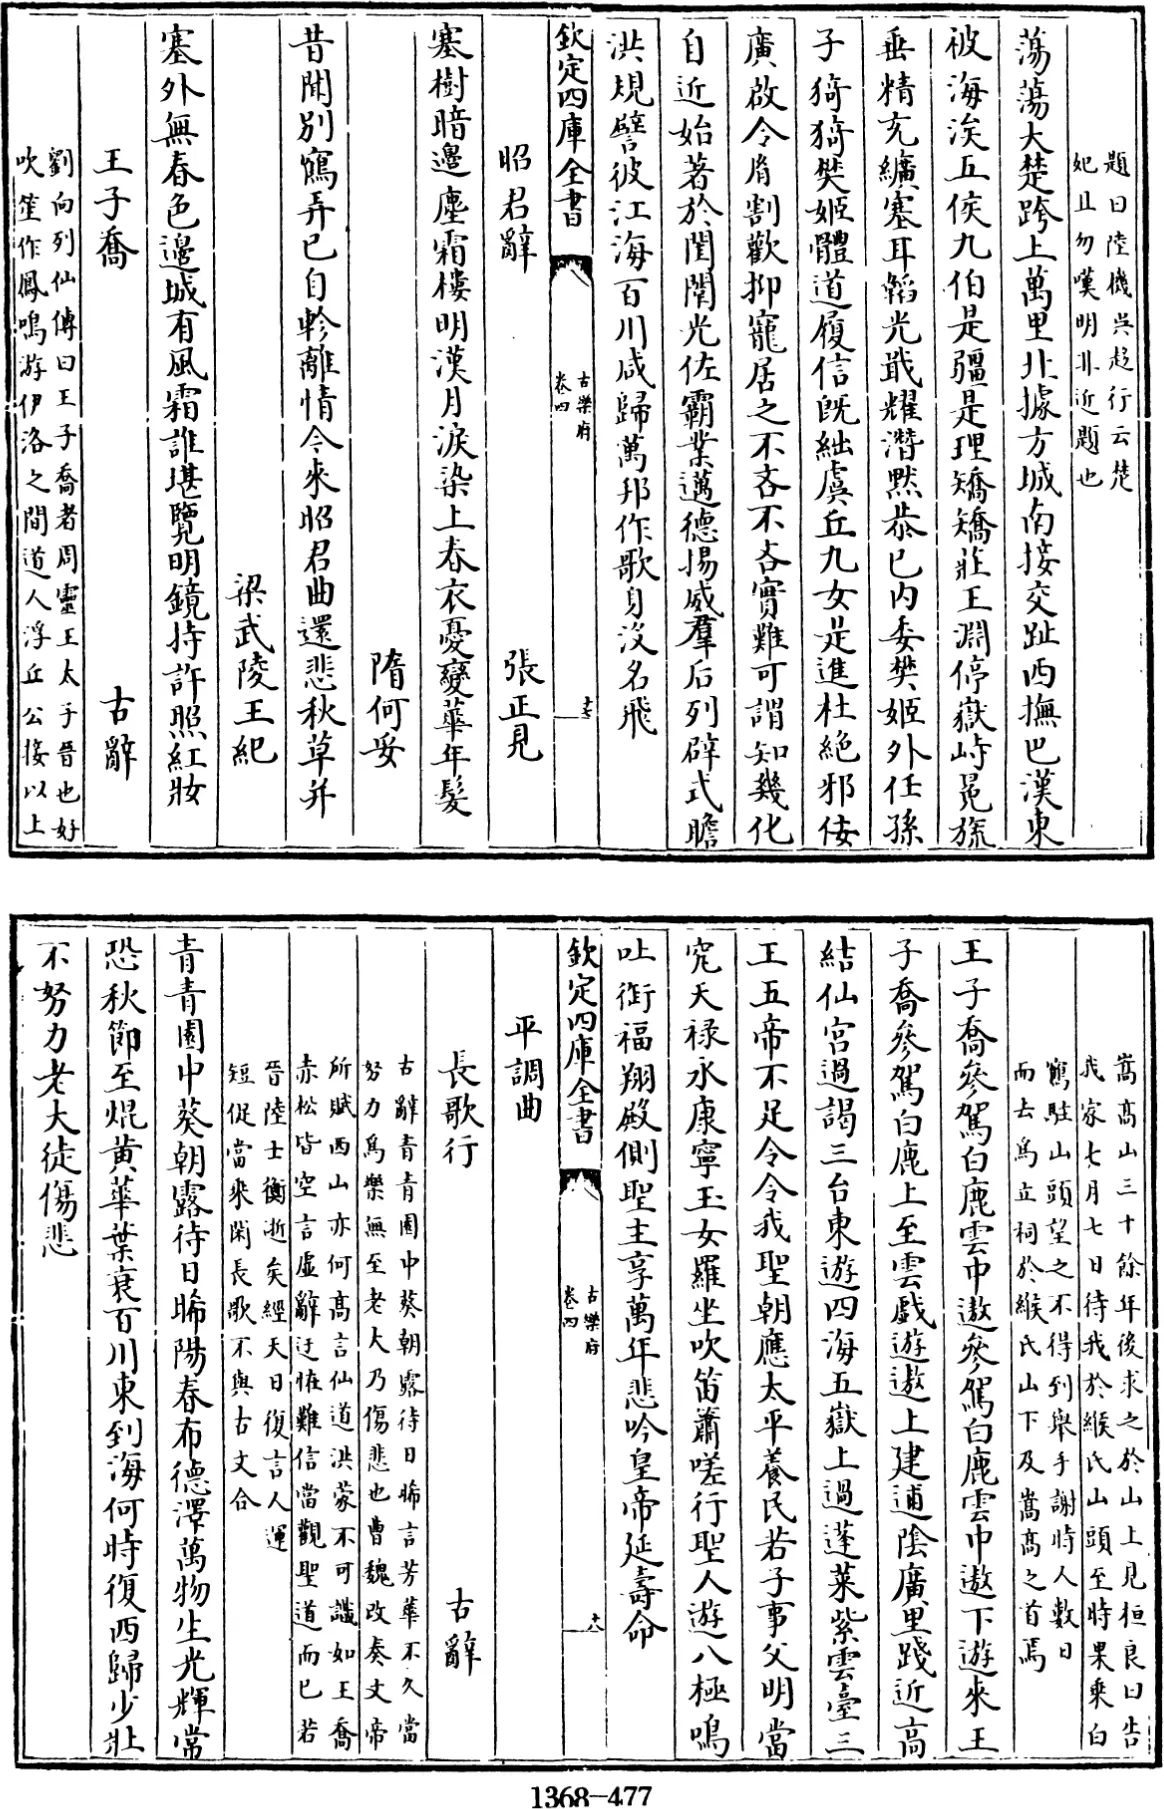 題曰陸機吳趨行云楚
妃且勿嘆明非近題也
蕩蕩大楚跨土萬里北據方城南接交趾西撫巴漢東
被海涘五侯九伯是疆是理矯矯莊王淵停嶽峙冕旒
垂精充纊塞耳韜光戢耀潛黙恭已内委樊姬外任孫
子猗猗樊姬體道履信既絀虞丘九女是進杜絶邪佞
廣啟令胥割歡抑寵居之不吝不吝實難可謂知幾化
自近始著於閨闈光佐霸業邁德揚威羣后列辟式瞻
洪規譬彼江海百川咸歸萬邦作歌身没名飛
欽定四庫全書
古樂府
卷四
十七
昭君辭 張正見
塞樹暗邊塵霜樓明漢月淚染上春衣憂變華年髪
隋何妥
昔聞别鶴弄已自軫離情今來昭君曲還悲秋草并
梁武陵王紀
塞外無春色邊城有風霜誰堪覽明鏡持許照紅妝
王子喬 古辭
劉向列仙傳曰王子喬者周靈王太子晉也好
吹笙作鳳鳴游伊洛之間道人浮丘公接以上
嵩高山三十餘年後求之於山上見桓良曰告
我家七月七日待我於緱氏山頭至時果乘白
鶴駐山頭望之不得到舉手謝時人數日
而去為立祠於緱氏山下及嵩高之首焉
王子喬參駕白鹿雲中遨參駕白鹿雲中遨下遊來王
子喬參駕白鹿上至雲戲遊遨上建逋隂廣里踐近高
結仙宫過謁三台東遊四海五嶽上過蓬萊紫雲臺三
王五帝不足令令我聖朝應太平養民若子事父明當
究天禄永康寧玉女羅坐吹笛蕭嗟行聖人遊八極鳴
吐銜福翔殿側聖主享萬年悲吟皇帝延壽命
欽定四庫全書
古樂府
卷四
十八
平調曲
長歌行 古辭
古辭青青園中葵朝露待日晞言芳華不久當
努力為樂無至老大乃傷悲也曹魏改奏文帝
所賦西山亦何髙言仙道洪濛不可識如王喬
赤松皆空言虚辭迂怪難信當觀聖道而已若
晉陸士衡逝矣經天日復言人運
短促當乘閑長歌不與古文合
青青園中葵朝露待日晞陽春布德澤萬物生光輝常
恐秋節至焜黄華葉衰百川東到海何時復西歸少壯
不努力老大徒傷悲
1368—477